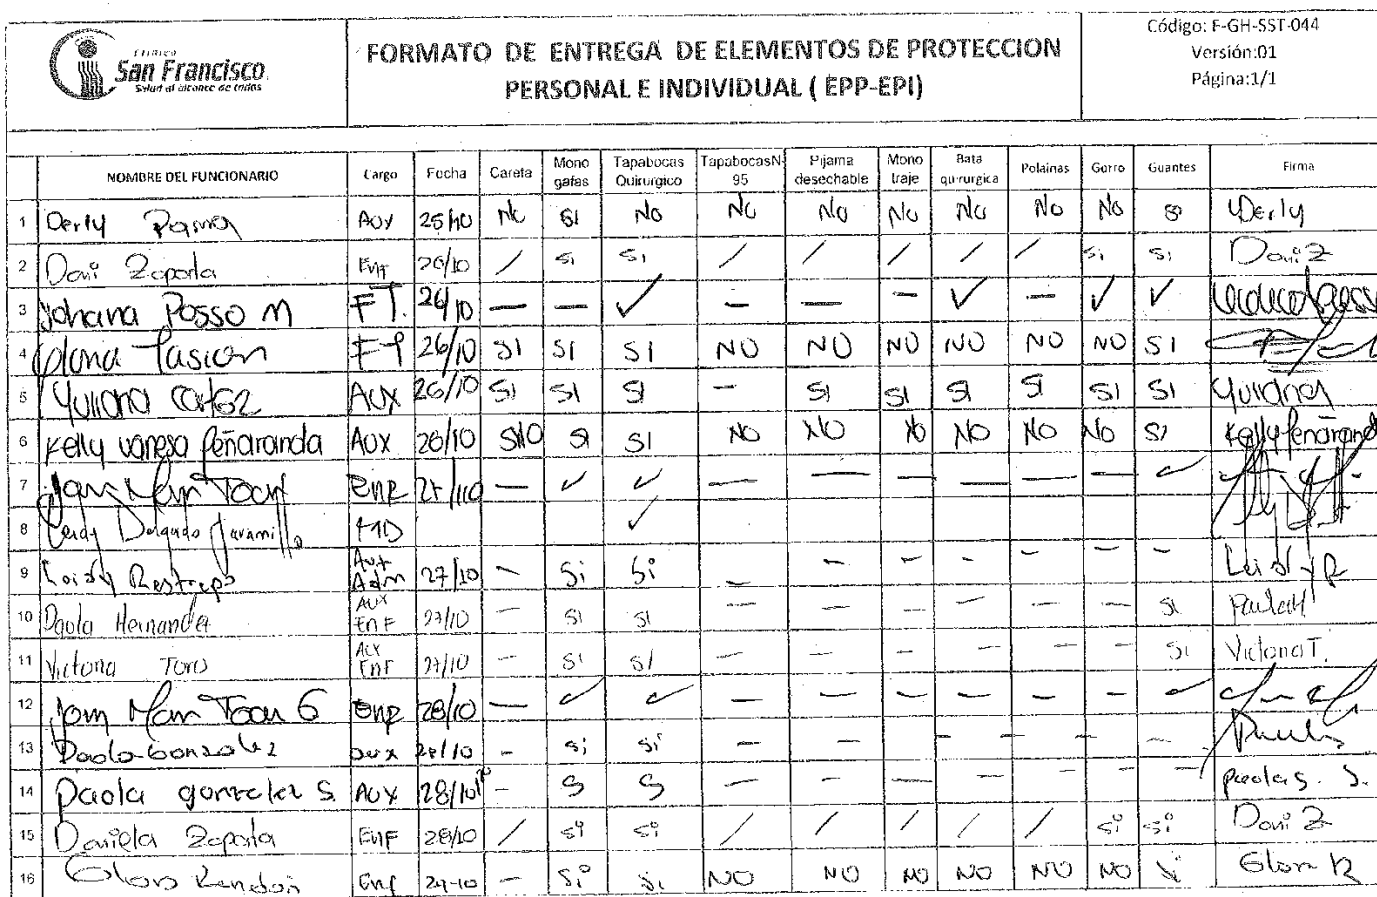 Clínica
San Francisco.
Salud al alcance de todos
FORMATO DE ENTREGA DE ELEMENTOS DE PROTECCION
PERSONAL E INDIVIDUAL ( EPP-EPI)
Código: F-GH-SST-044
Versión:01
Página:1/1
NOMBRE DEL FUNCIONARIO Cargo Fecha Careta Mono gafas Tapabocas Quirurgico TapabocasN-95 Pijama desechable Mono traje Bata quirurgica Polainas Gorro Guantes Firma
1 Derly Aux 25/10 No SI No No No No No No No SI Derly
2 Dani Zapata Enf 26/10 / Si Si / / / / / Si Si Dani Z
3 Johana Posso M FT. 26/10 — — ✓ — — — ✓ — ✓ ✓
4 FT 26/10 SI SI SI NO NO NO NO NO NO SI
5 Yuliana Cortez AUX 26/10 SI SI SI — SI SI SI SI SI SI Yuliana
6 Kelly vanesa Peñaranda AUX 26/10 NO SI SI NO NO NO NO NO NO SI Kelly Peñaranda
7 Enf 27/10 — ✓ ✓ — — — — — — ✓
8 Leidy Delgado Jaramillo MD ✓
9 Leidy Restrepo Aux Adm 27/10 – Si Si – – – – – – – Leidy R
10 Paola Hernandez Aux Enf 27/10 – SI SI – – – – – – SI Paula H
11 Victoria Toro Aux Enf 27/10 – SI SI – – – – – – SI Victoria T.
12 Enf 28/10 — ✓ ✓ — — — — — — ✓
13 Paola Gonzalez aux 28/10 – Si Si – – – – – – –
14 Paola gonzalez S. Aux 28/10 – S S – – – – – – – paola S.
15 Daniela Zapata Enf 28/10 / Si Si / / / / / Si Si Dani Z
16 Rendon Enf 29-10 – Si Si NO NO NO NO NO NO